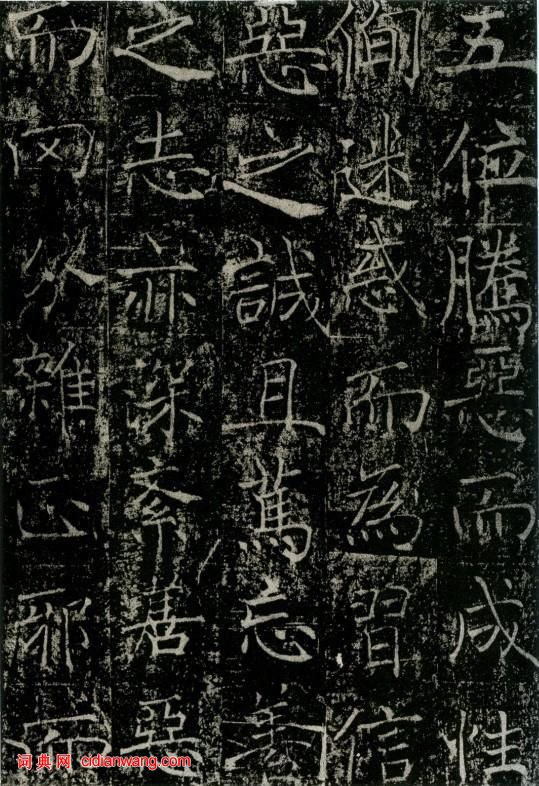 五位騰惡而成性
徇迷惑而為習信
惡之誠且篤忘善
之志亦深紊善惡
而罔分雜正邪而
词典网:cidianwang.com